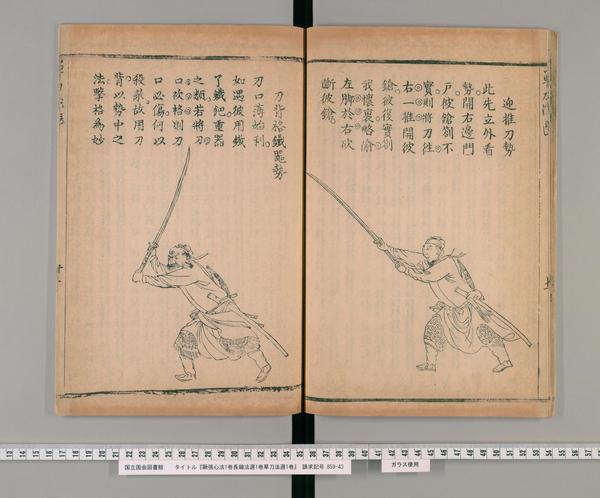 迎推刀勢
此先立外看
勢開右邊門
戶彼鎗劄不
實則將刀往
右一推開彼
鎗彼復實劄
我懷裏略偷
左脚於右砍
斷彼鎗
刀背格鐵器勢
刀口薄始利
如遇彼用鐵
了鐵鈀重器
之類若將刀
口砍格則刀
口必傷何以
殺故用刀
背以勢中之
法擊格為妙
国立国会図書館 タイトル『蹶張心法1巻長鎗法選1巻單刀法選1巻』 請求記号 859-43
ガラス使用